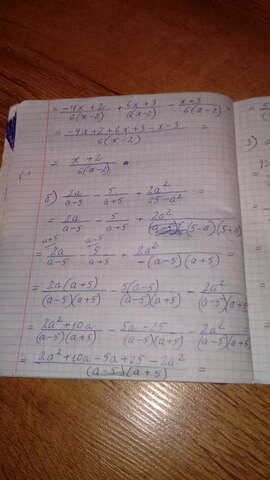 = \frac{-4x+2}{6(x-2)} + \frac{6x+3}{6(x-2)} - \frac{x+3}{6(x-2)} =
= \frac{-4x+2+6x+3-x-3}{6(x-2)} =
= \frac{x+2}{6(x-2)}.
б) \frac{2a}{a-5} - \frac{5}{a+5} + \frac{2a^2}{25-a^2} =
= \frac{2a}{a-5} - \frac{5}{a+5} + \frac{2a^2}{(5-a)(5+
= \frac{2a}{a-5}^{a+5} - \frac{5}{a+5}^{a-5} + \frac{2a^2}{-(a-5)(a+5)} =
= \frac{2a(a+5)}{(a-5)(a+5)} - \frac{5(a-5)}{(a-5)(a+5)} - \frac{2a^2}{(a-5)(a+5)
= \frac{2a^2+10a}{(a-5)(a+5)} - \frac{5a-25}{(a-5)(a+5)} - \frac{2a^2}{(a-5)(a+5)
= \frac{2a^2+10a-5a+25-2a^2}{(a-5)(a+5)} =